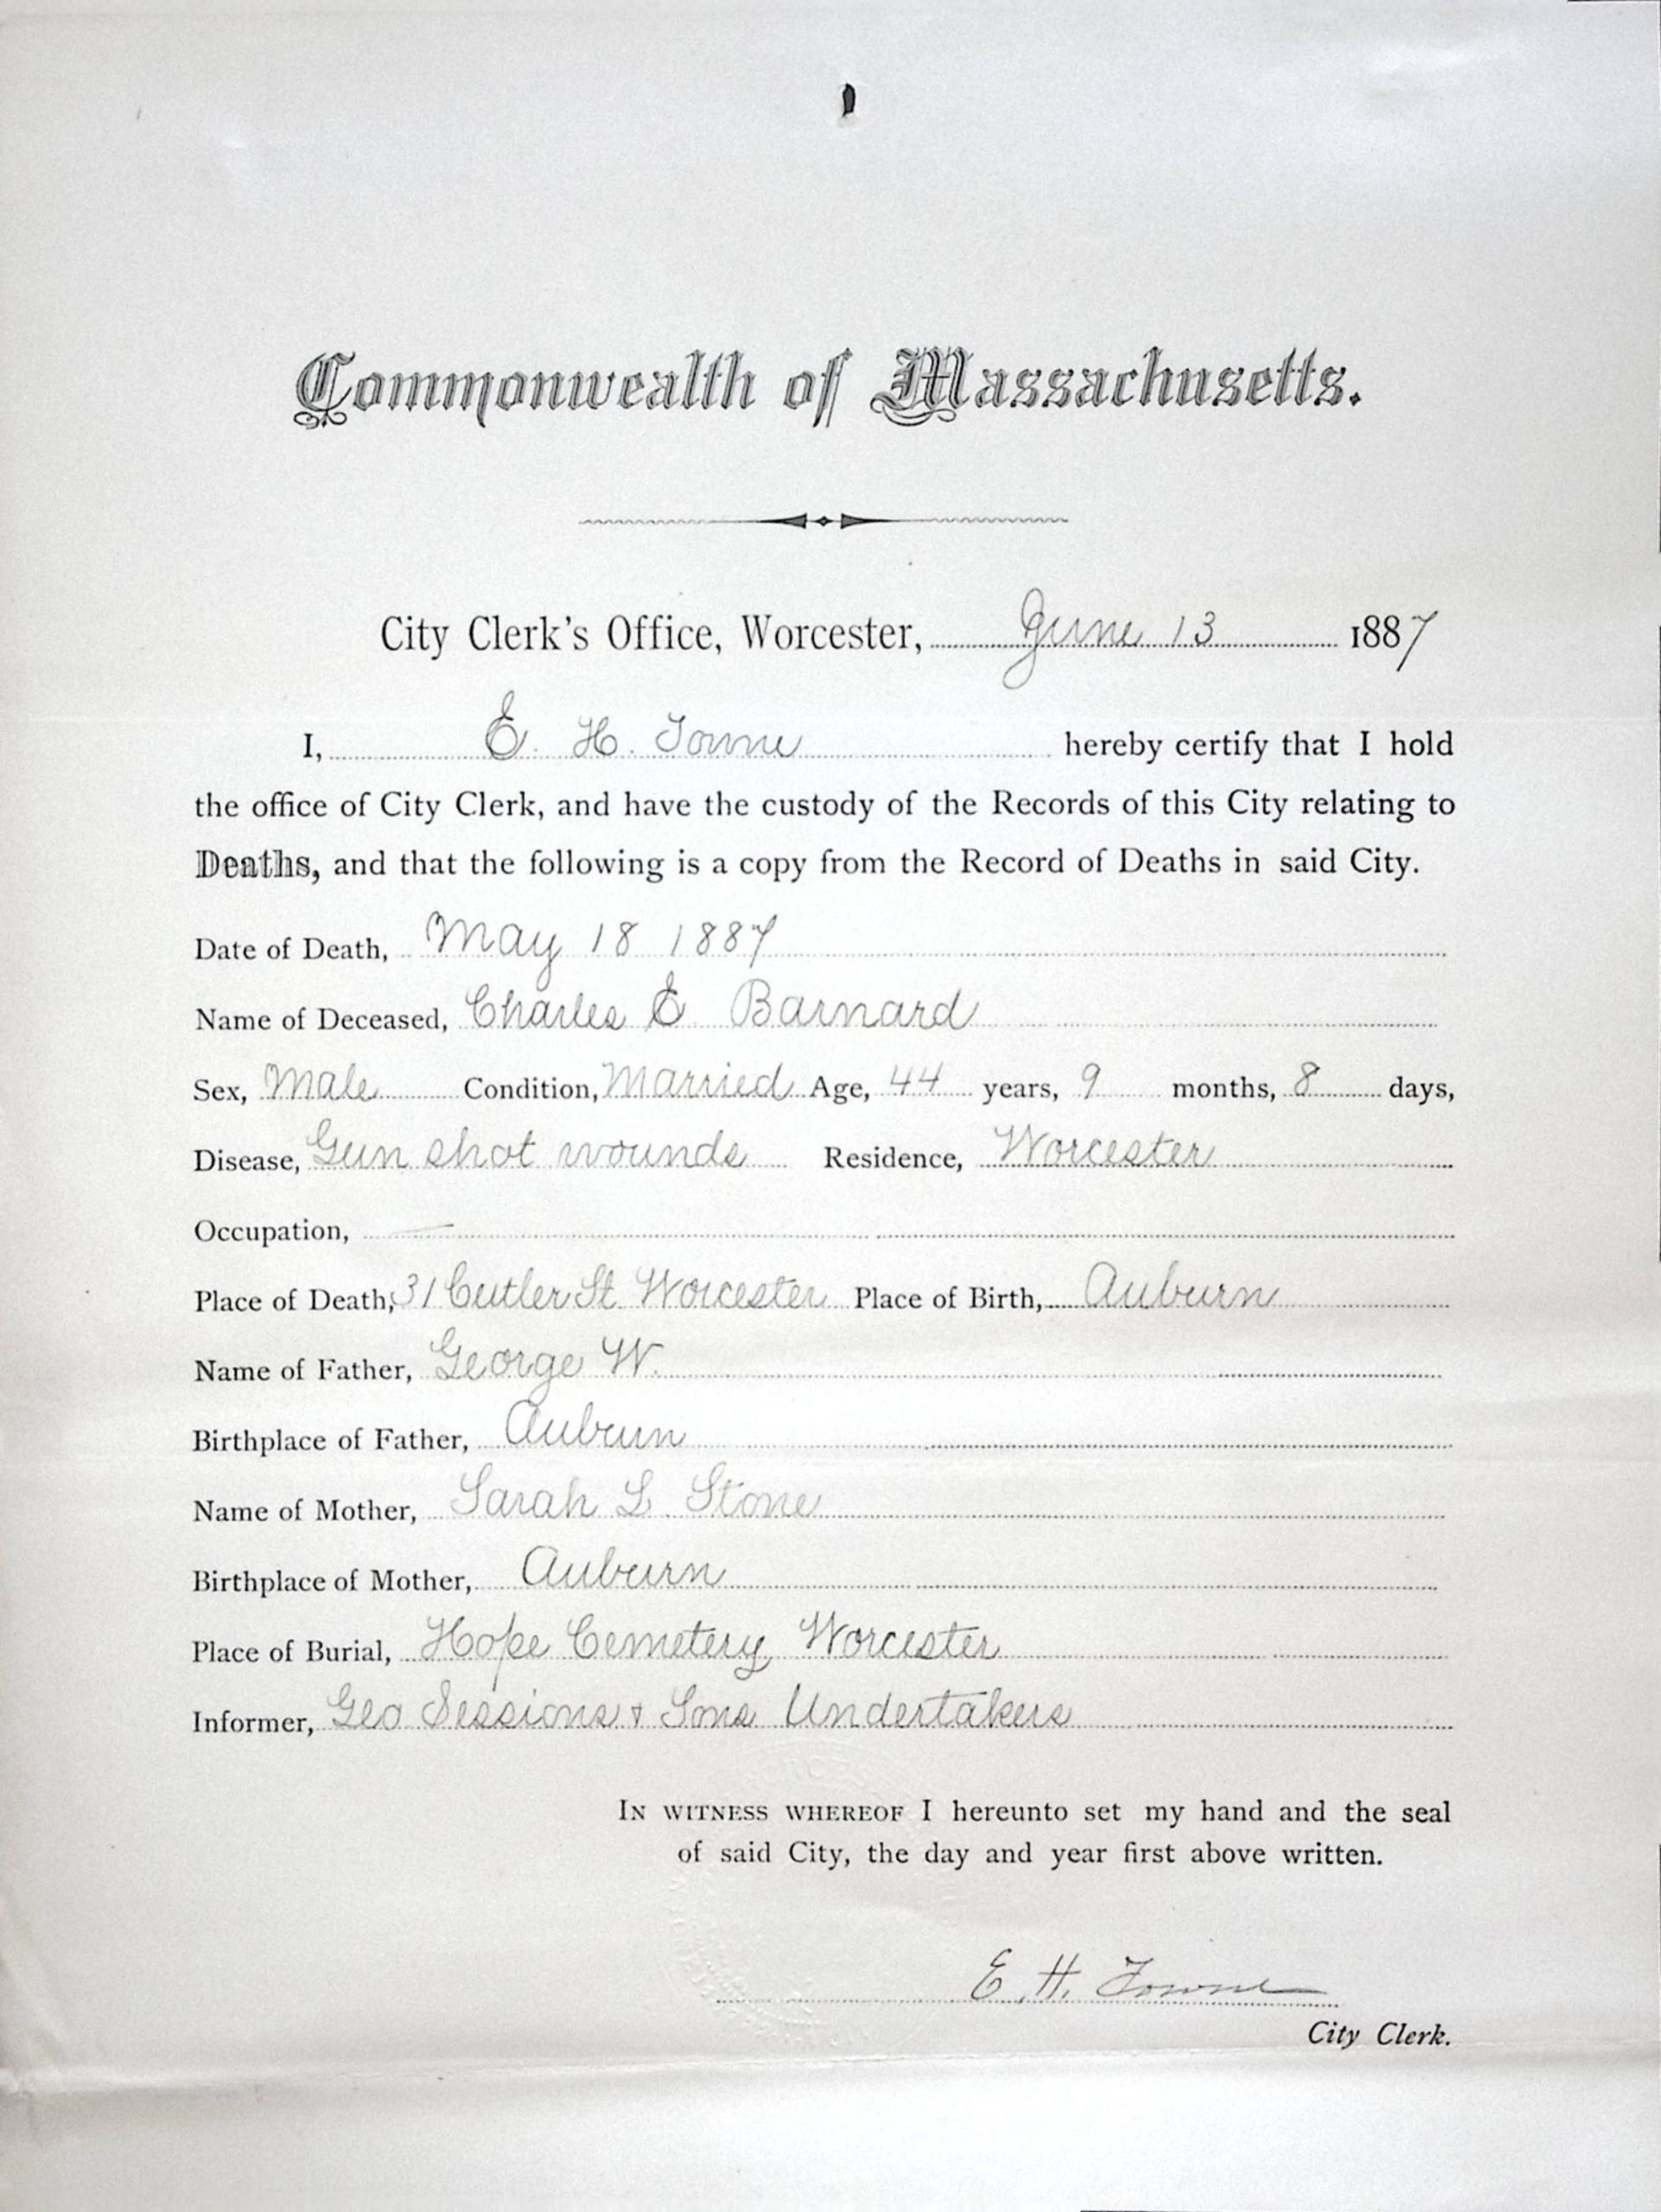 Commonwealth of Massachusetts.
City Clerk's Office, Worcester, June 13 1887
I, E. H. Towne hereby certify that I hold
the office of City Clerk, and have the custody of the Records of this City relating to
Deaths, and that the following is a copy from the Record of Deaths in said City.
Date of Death, May 18 1887
Name of Deceased, Charles E Barnard
Sex, Male Condition, Married Age, 44 years, 9 months, 8 days,
Disease, Gun shot wounds Residence, Worcester
Occupation, —
Place of Death, 31 Cutler St Worcester Place of Birth, Auburn
Name of Father, George W.
Birthplace of Father, Auburn
Name of Mother, Sarah L. Stone
Birthplace of Mother, Auburn
Place of Burial, Hope Cemetery, Worcester
Informer, Geo Sessions & Sons Undertakers
In witness whereof I hereunto set my hand and the seal
of said City, the day and year first above written.
E. H. Towne
City Clerk.